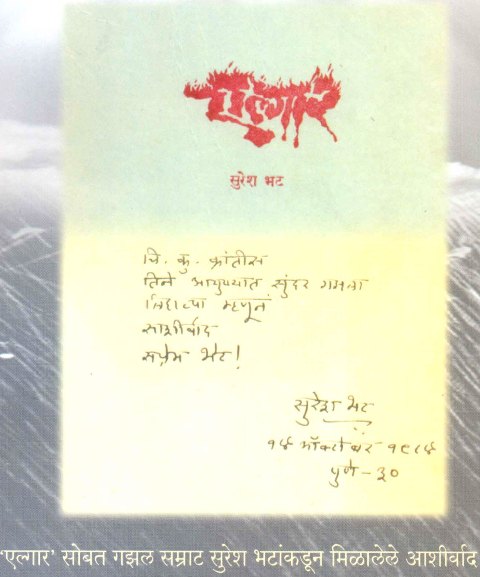 एल्गार
सुरेश भट
चि. कु. क्रांतीस
तिने आयुष्यात सुंदर गझला
लिहाव्या म्हणून
साशीर्वाद
सप्रेम भेट!
सुरेश भट
१४ ऑक्टोबर १९८४
पुणे - ३०
'एल्गार' सोबत गझल सम्राट सुरेश भटांकडून मिळालेले आशीर्वाद